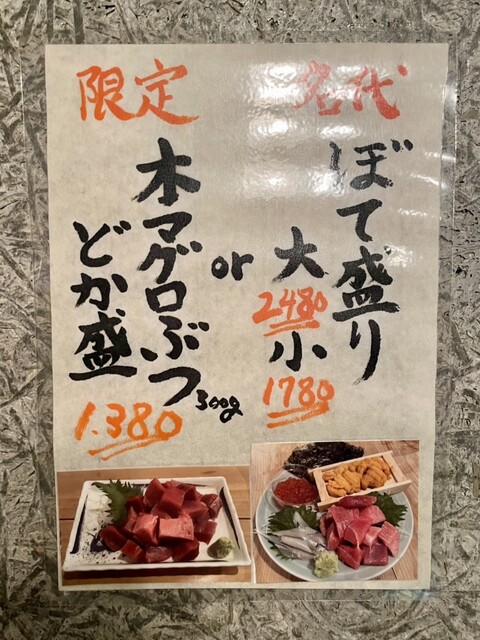 名代
ぼて盛り
大
2480
小
1780
or
限定
本マグロぶつ
300g
どか盛
1.380